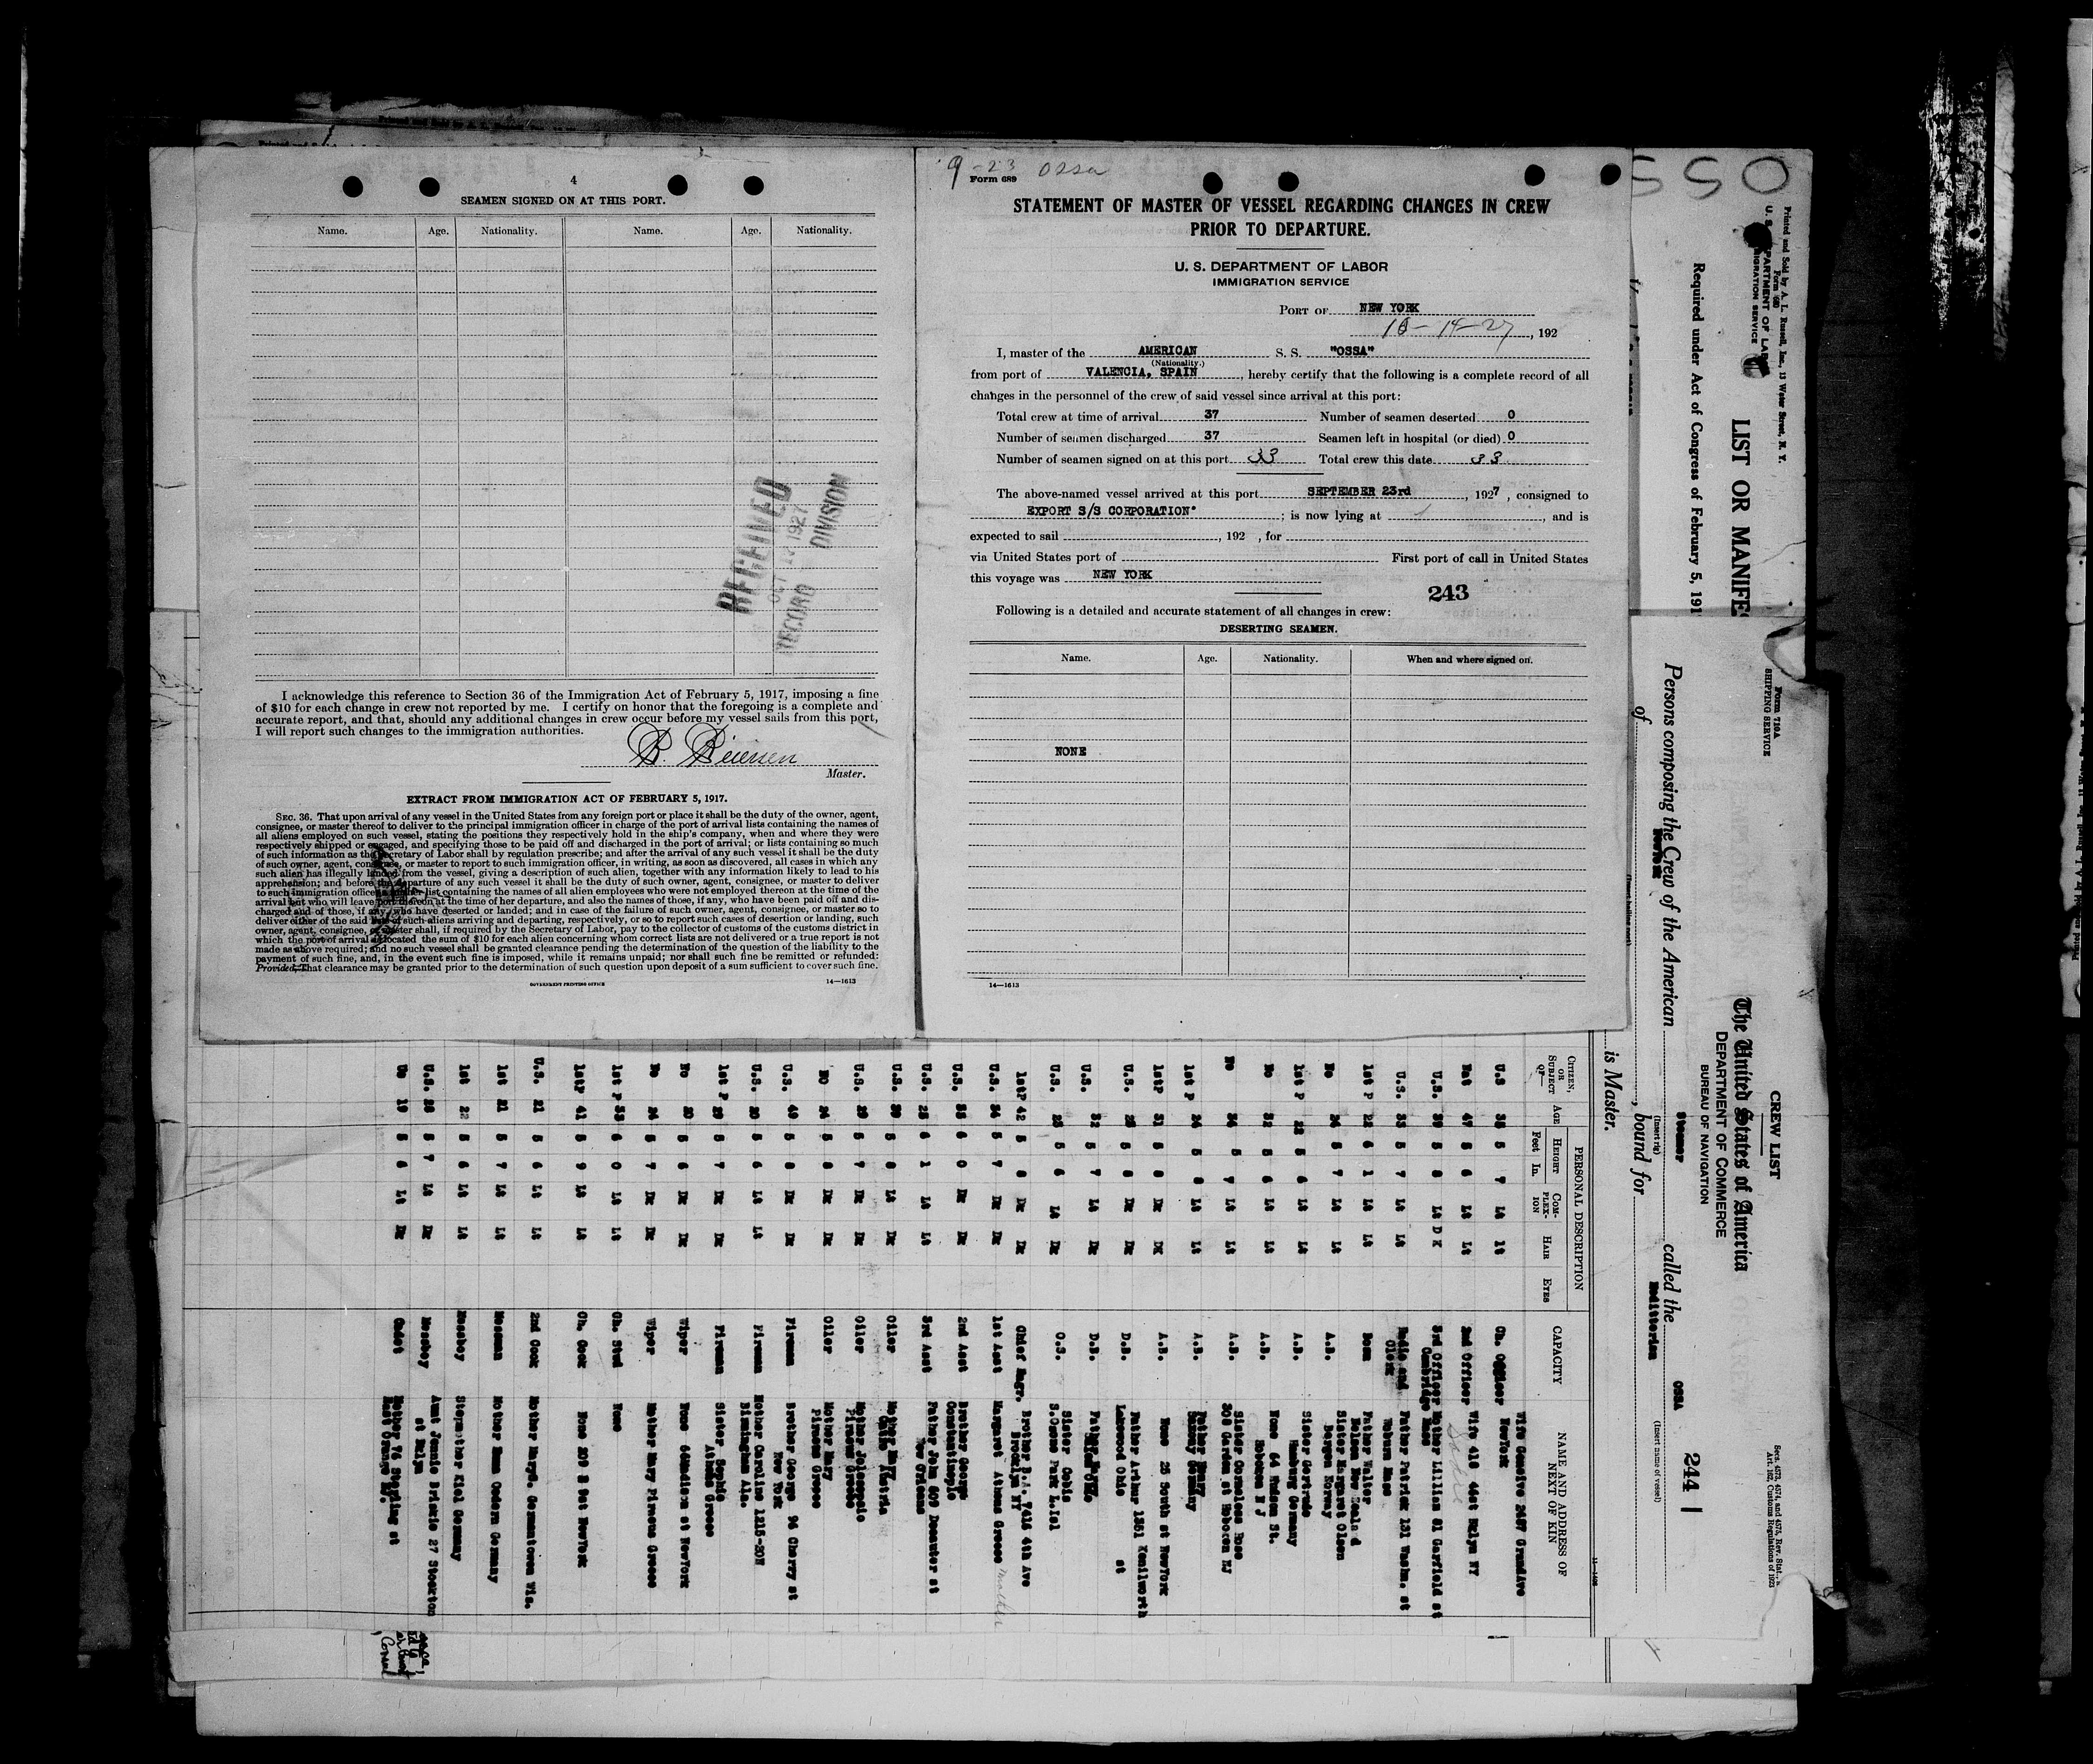 4
SEAMEN SIGNED ON AT THIS PORT.
Name. Age. Nationality. Name. Age. Nationality.
RECEIVED
1927
RECORD DIVISION
I acknowledge this reference to Section 36 of the Immigration Act of February 5, 1917, imposing a fine
of $10 for each change in crew not reported by me. I certify on honor that the foregoing is a complete and
accurate report, and that, should any additional changes in crew occur before my vessel sails from this port,
I will report such changes to the immigration authorities.
Master.
EXTRACT FROM IMMIGRATION ACT OF FEBRUARY 5, 1917.
SEC. 36. That upon arrival of any vessel in the United States from any foreign port or place it shall be the duty of the owner, agent,
consignee, or master thereof to deliver to the principal immigration officer in charge of the port of arrival lists containing the names of
all aliens employed on such vessel, stating the positions they respectively hold in the ship's company, when and where they were
respectively shipped or engaged, and specifying those to be paid off and discharged in the port of arrival; or lists containing so much
of such information as the Secretary of Labor shall by regulation prescribe; and after the arrival of any such vessel it shall be the duty
of such owner, agent, consignee, or master to report to such immigration officer, in writing, as soon as discovered, all cases in which any
such alien has illegally landed from the vessel, giving a description of such alien, together with any information likely to lead to his
apprehension; and before the departure of any such vessel it shall be the duty of such owner, agent, consignee, or master to deliver
to such immigration officer a further list containing the names of all alien employees who were not employed thereon at the time of the
arrival but who will leave port thereon at the time of her departure, and also the names of those, if any, who have been paid off and dis-
charged and of those, if any, who have deserted or landed; and in case of the failure of such owner, agent, consignee, or master so to
deliver either of the said lists of such aliens arriving and departing, respectively, or so to report such cases of desertion or landing, such
owner, agent, consignee, or master shall, if required by the Secretary of Labor, pay to the collector of customs of the customs district in
which the port of arrival is located the sum of $10 for each alien concerning whom correct lists are not delivered or a true report is not
made as above required; and no such vessel shall be granted clearance pending the determination of the question of the liability to the
payment of such fine, and, in the event such fine is imposed, while it remains unpaid; nor shall such fine be remitted or refunded:
Provided, That clearance may be granted prior to the determination of such question upon deposit of a sum sufficient to cover such fine.
GOVERNMENT PRINTING OFFICE 14—1613
9-23 Ossa
Form 689
STATEMENT OF MASTER OF VESSEL REGARDING CHANGES IN CREW
PRIOR TO DEPARTURE.
U. S. DEPARTMENT OF LABOR
IMMIGRATION SERVICE
PORT OF NEW YORK
10-14-27, 192
I, master of the AMERICAN S. S. "OSSA"
(Nationality.)
from port of VALENCIA, SPAIN, hereby certify that the following is a complete record of all
changes in the personnel of the crew of said vessel since arrival at this port:
Total crew at time of arrival 37 Number of seamen deserted 0
Number of seamen discharged 37 Seamen left in hospital (or died) 0
Number of seamen signed on at this port 33 Total crew this date 33
The above-named vessel arrived at this port SEPTEMBER 23rd, 1927, consigned to
EXPORT S/S CORPORATION; is now lying at , and is
expected to sail , 192 , for
via United States port of First port of call in United States
this voyage was NEW YORK
243
Following is a detailed and accurate statement of all changes in crew:
DESERTING SEAMEN.
Name. Age. Nationality. When and where signed on.
NONE
14—1613
Printed and Sold by A. L. Russell, Inc., 13 Water Street, N. Y.
Form 680
LIST OR MANIFES
Required under Act of Congress of February 5, 191
Form 710A
SHIPPING SERVICE
CREW LIST
The United States of America
DEPARTMENT OF COMMERCE
BUREAU OF NAVIGATION
244
Secs. 4573, 4574, and 4575, Rev. Stat.,
Art. 162, Customs Regulations of 1923
Persons composing the Crew of the American Steamer called the OSSA
(Insert rig) (Insert name of vessel)
of NewYork, bound for
is Master.
CITIZEN, OR SUBJECT OF— AGE PERSONAL DESCRIPTION CAPACITY NAME AND ADDRESS OF NEXT OF KIN
HEIGHT Feet In. COMPLEXION HAIR EYES
U.S 35 5 7 Lt Lt Ch. Officer NewYork
Nat 47 5 6 Lt Lt 2nd Officer Wife 418 44st Bklyn NY
U.S. 39 5 8 Lt D K 3rd Officer Mother Lillian 81 Garfield st Cambridge Mass
U.S. 33 5 7 Lt Lt Radio and Clerk Father Patrick 131 Washn. st Woburn Mass
1st P 22 6 1 Lt Lt Bosn Father Walter
No 24 5 7 Lt Lt A.B. Sister Margaret Olsen Bergen Norway
1st P 23 5 6 Lt Lt A.B. Sister Gertrude Hamburg Germany
No 32 5 6 Lt Lt A.B. None 64 Hudson St. Hoboken N J
No 34 5 7 Lt Lt A.B. 308 Garden st Hoboken NJ
1st P 24 5 8 Lt Lt A.B.
1stP 31 5 8 Dk DK A.B. None 25 South st NewYork
U.S. 25 5 8 Dk Dk D.B. Father Arthur 1351 Kenilworth st Lakewood Ohio
U.S. 32 5 7 Lt Dk D.B.
U.S. 23 5 6 Lt Dk O.S. S.Ozone Park L.Isl
1stP 42 5 8 Dk Dk Chief Engr. Brother B.A. 7414 4th Ave Brooklyn NY
U.S. 34 5 7 Dk Dk 1st Asst Margaret Athens Greece mother
U.S. 35 6 0 Dk Dk 2nd Asst Brother George Constantinople
U.S. 25 6 1 Lt Lt 3rd Asst Father John 809 Decauter st New Orleans
U.S. 39 5 8 Lt Dk Oiler Mother Mary
U.S. 29 5 7 Dk Dk Oiler
NO 24 5 8 Dk Dk Oiler Mother Mary Pireaus Greece
U.S. 49 5 8 Dk Dk Fireman Brother George 96 Cherry st New York
U.S. 20 5 6 Lt Lt Fireman Mother Caroline 1215-20N Birmingham Ala.
1st P 29 5 7 Dk Dk Fireman Sister Sophie Athens Greece
No 30 5 6 Dk Dk Wiper None 64Madison st NewYork
No 24 5 7 Dk Dk Wiper Mother Mary Pireaus Greece
1st P 33 6 0 Lt Lt Ch. Stwd None
1stP 41 5 9 Lt Lt Ch. Cook None 209 E 9st NewYork
U.S. 21 5 6 Lt Lt 2nd Cook Mother MaryG. Germantown Wis.
1st 21 5 7 Lt Lt Messman Mother Emma Cedern Germany
1st 22 5 6 Lt Lt Messboy Stepmother Kiel Germany
U.S. 28 5 7 Lt Dk Messboy Aunt Jennie Brinkie 27 Stockton st Bklyn
Us 19 5 6 Lt Dk Cadet Mother 76 Sterling st East Orange NJ.